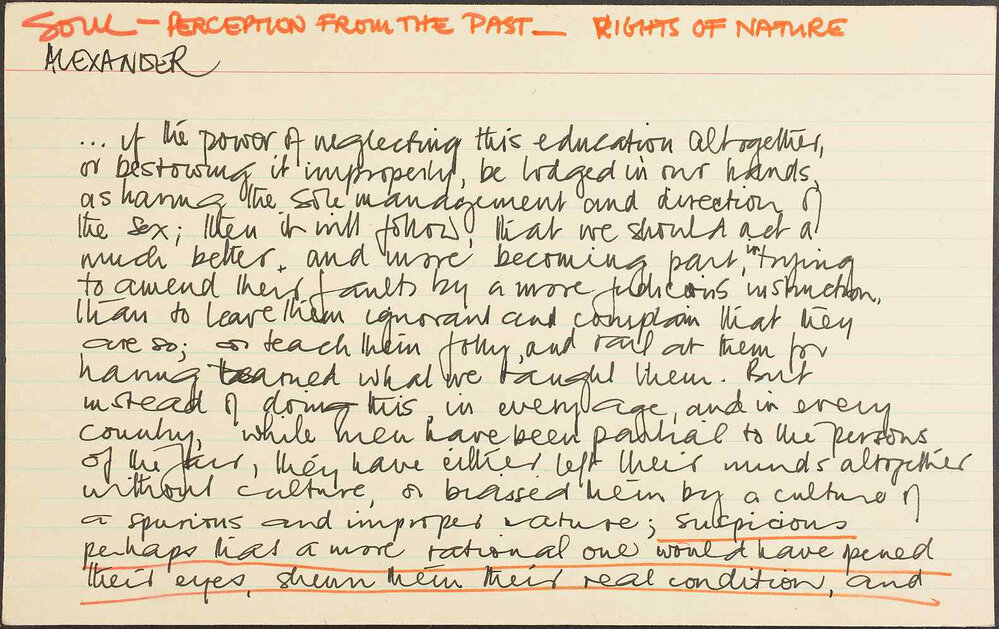 SOUL — PERCEPTION FROM THE PAST — RIGHTS OF NATURE
ALEXANDER
... if the power of neglecting this education altogether,
or bestowing it improperly, be lodged in our hands,
as having the sole management and direction of
the sex; then it will follow, that we should act a
much better, and more becoming part, in trying
to amend their faults by a more judicious instruction,
than to leave them ignorant and complain that they
are so; or teach them folly, and rail at them for
having learned what we taught them. But
instead of doing this, in every age, and in every
country, while men have been partial to the persons
of the fair, they have either left their minds altogether
without culture, or biassed them by a culture of
a spurious and improper nature; suspicious
perhaps that a more rational one would have opened
their eyes, shewn them their real condition, and